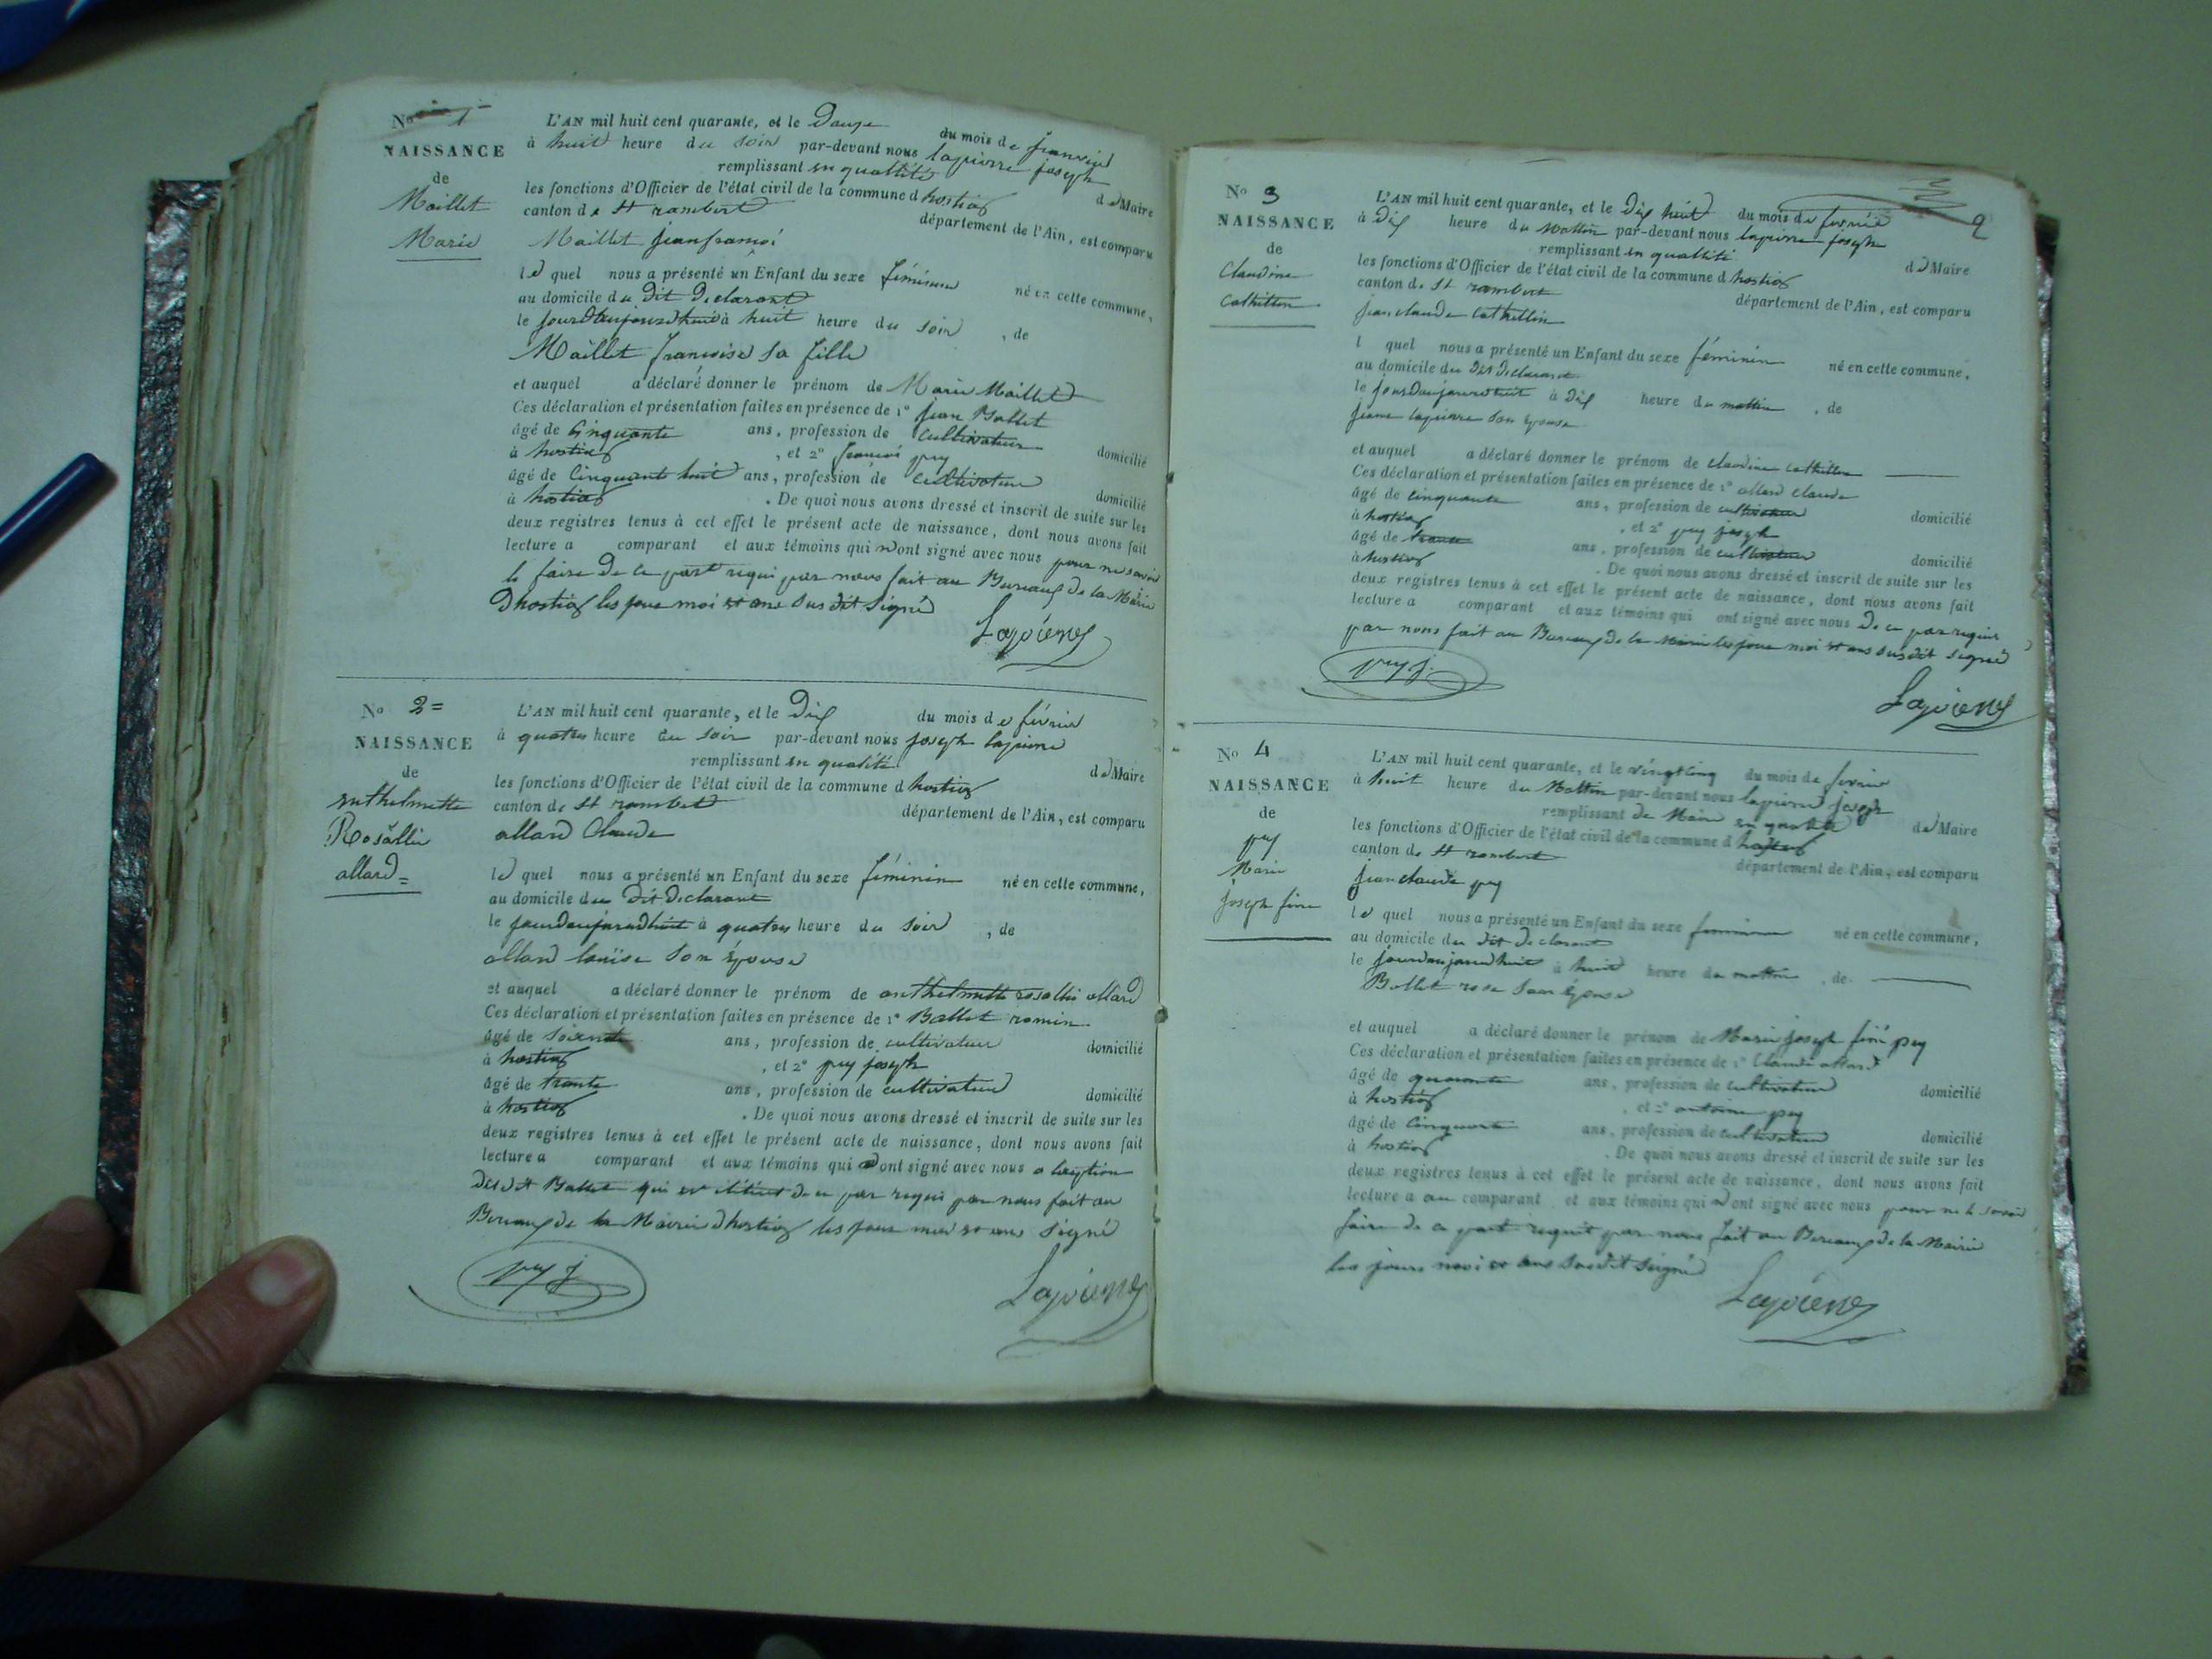 No 1
NAISSANCE
de
Maillet
Marie
L'AN mil huit cent quarante, et le Douze du mois de janvier
à huit heure du soir par-devant nous lapierre joseph
remplissant en quallité de Maire
les fonctions d'Officier de l'état civil de la commune d hostiaz
canton de St rambert département de l'Ain, est comparu
Maillet jean francoi
le quel nous a présenté un Enfant du sexe féminin né en cette commune,
au domicile du dit Declarant
le jourdhaujourdhuit à huit heure du soir , de
Maillet francoise sa fille
et auquel a déclaré donner le prénom de Marie Maillet
Ces déclaration et présentation faites en présence de 1º jean Ballet
âgé de Cinquante ans, profession de cultivateur domicilié
à hostiaz , et 2º francoi puy
âgé de Cinquante huit ans, profession de cultivateur domicilié
à hostiaz . De quoi nous avons dressé et inscrit de suite sur les
deux registres tenus à cet effet le présent acte de naissance, dont nous avons fait
lecture a comparant et aux témoins qui nont signé avec nous pour ne savoir
le faire de ce part requi par nous fait au Bureaux de la Mairie
Dhostiaz les jour moi et ans sus dit signé
Lapierre
No 2=
NAISSANCE
de
anthelmette
Rosallie
allard=
L'AN mil huit cent quarante, et le Dix du mois de février
à quatres heure du soir par-devant nous joseph lapierre
remplissant en qualité de Maire
les fonctions d'Officier de l'état civil de la commune d hostiaz
canton de St rambert département de l'Ain, est comparu
allard Claude
le quel nous a présenté un Enfant du sexe féminin né en cette commune,
au domicile du Dit Declarant
le jourdaujourdhuit à quatres heure du soir , de
allard louise son épouse
et auquel a déclaré donner le prénom de anthelmette rosallie allard
Ces déclaration et présentation faites en présence de 1º Ballet romin
âgé de ans, profession de cultivateur domicilié
à hostiaz , et 2º puy joseph
âgé de trante ans, profession de cultivateur domicilié
à hostiaz . De quoi nous avons dressé et inscrit de suite sur les
deux registres tenus à cet effet le présent acte de naissance, dont nous avons fait
lecture a comparant et aux témoins qui ont signé avec nous a
dudit Ballet qui est de ce par requi par nous fait au
Bureaux de la Mairie dhostiaz les jour moi et ans signé
puy j. Lapierre
No 3 2
NAISSANCE
de
Claudine
Cathillin
L'AN mil huit cent quarante, et le Dix huit du mois de fevrié
à Dix heure du Mattin par-devant nous lapierre joseph
remplissant en quallité de Maire
les fonctions d'Officier de l'état civil de la commune d hostiaz
canton de St rambert département de l'Ain, est comparu
jean claude Cathillin
l quel nous a présenté un Enfant du sexe féminin né en cette commune,
au domicile du Dit Declarant
le jourdaujourdhuit à Dix heure du mattin , de
jeane lapierre son épouse
et auquel a déclaré donner le prénom de claudine cathillin
Ces déclaration et présentation faites en présence de 1º allard claude
âgé de cinquante ans, profession de cultivateur domicilié
à hostiaz , et 2º puy joseph
âgé de trante ans, profession de cultivateur domicilié
à hostiaz . De quoi nous avons dressé et inscrit de suite sur les
deux registres tenus à cet effet le présent acte de naissance, dont nous avons fait
lecture a comparant et aux témoins qui ont signé avec nous De ce par requi
par nous fait au Bureaux de la Mairie les jour moi et ans sus dit signé
puy j.
Lapierre
No 4
NAISSANCE
de
puy
Marie
joseph fine
L'AN mil huit cent quarante, et le vingt cinq du mois de fevrier
à huit heure du Mattin par-devant nous lapierre joseph
remplissant de Maire en qualité de Maire
les fonctions d'Officier de l'état civil de la commune d hostiaz
canton de St rambert département de l'Ain, est comparu
jean claude puy
le quel nous a présenté un Enfant du sexe feminin né en cette commune,
au domicile du dit Declarant
le jourdaujourdhuit à huit heure du mattin , de
Ballet rose son épouse
et auquel a déclaré donner le prénom de Marie joseph finé puy
Ces déclaration et présentation faites en présence de 1º Claude allard
âgé de quarante ans, profession de cultivateur domicilié
à hostiaz , et 2º antoine puy
âgé de Cinquante ans, profession de cultivateur domicilié
à hostiaz . De quoi nous avons dressé et inscrit de suite sur les
deux registres tenus à cet effet le présent acte de naissance, dont nous avons fait
lecture a au comparant et aux témoins qui nont signé avec nous pour ne le savoir
faire de ce part requit par nous fait au Bureaux de la Mairie
les jours moi et ans susdit signé
Lapierre